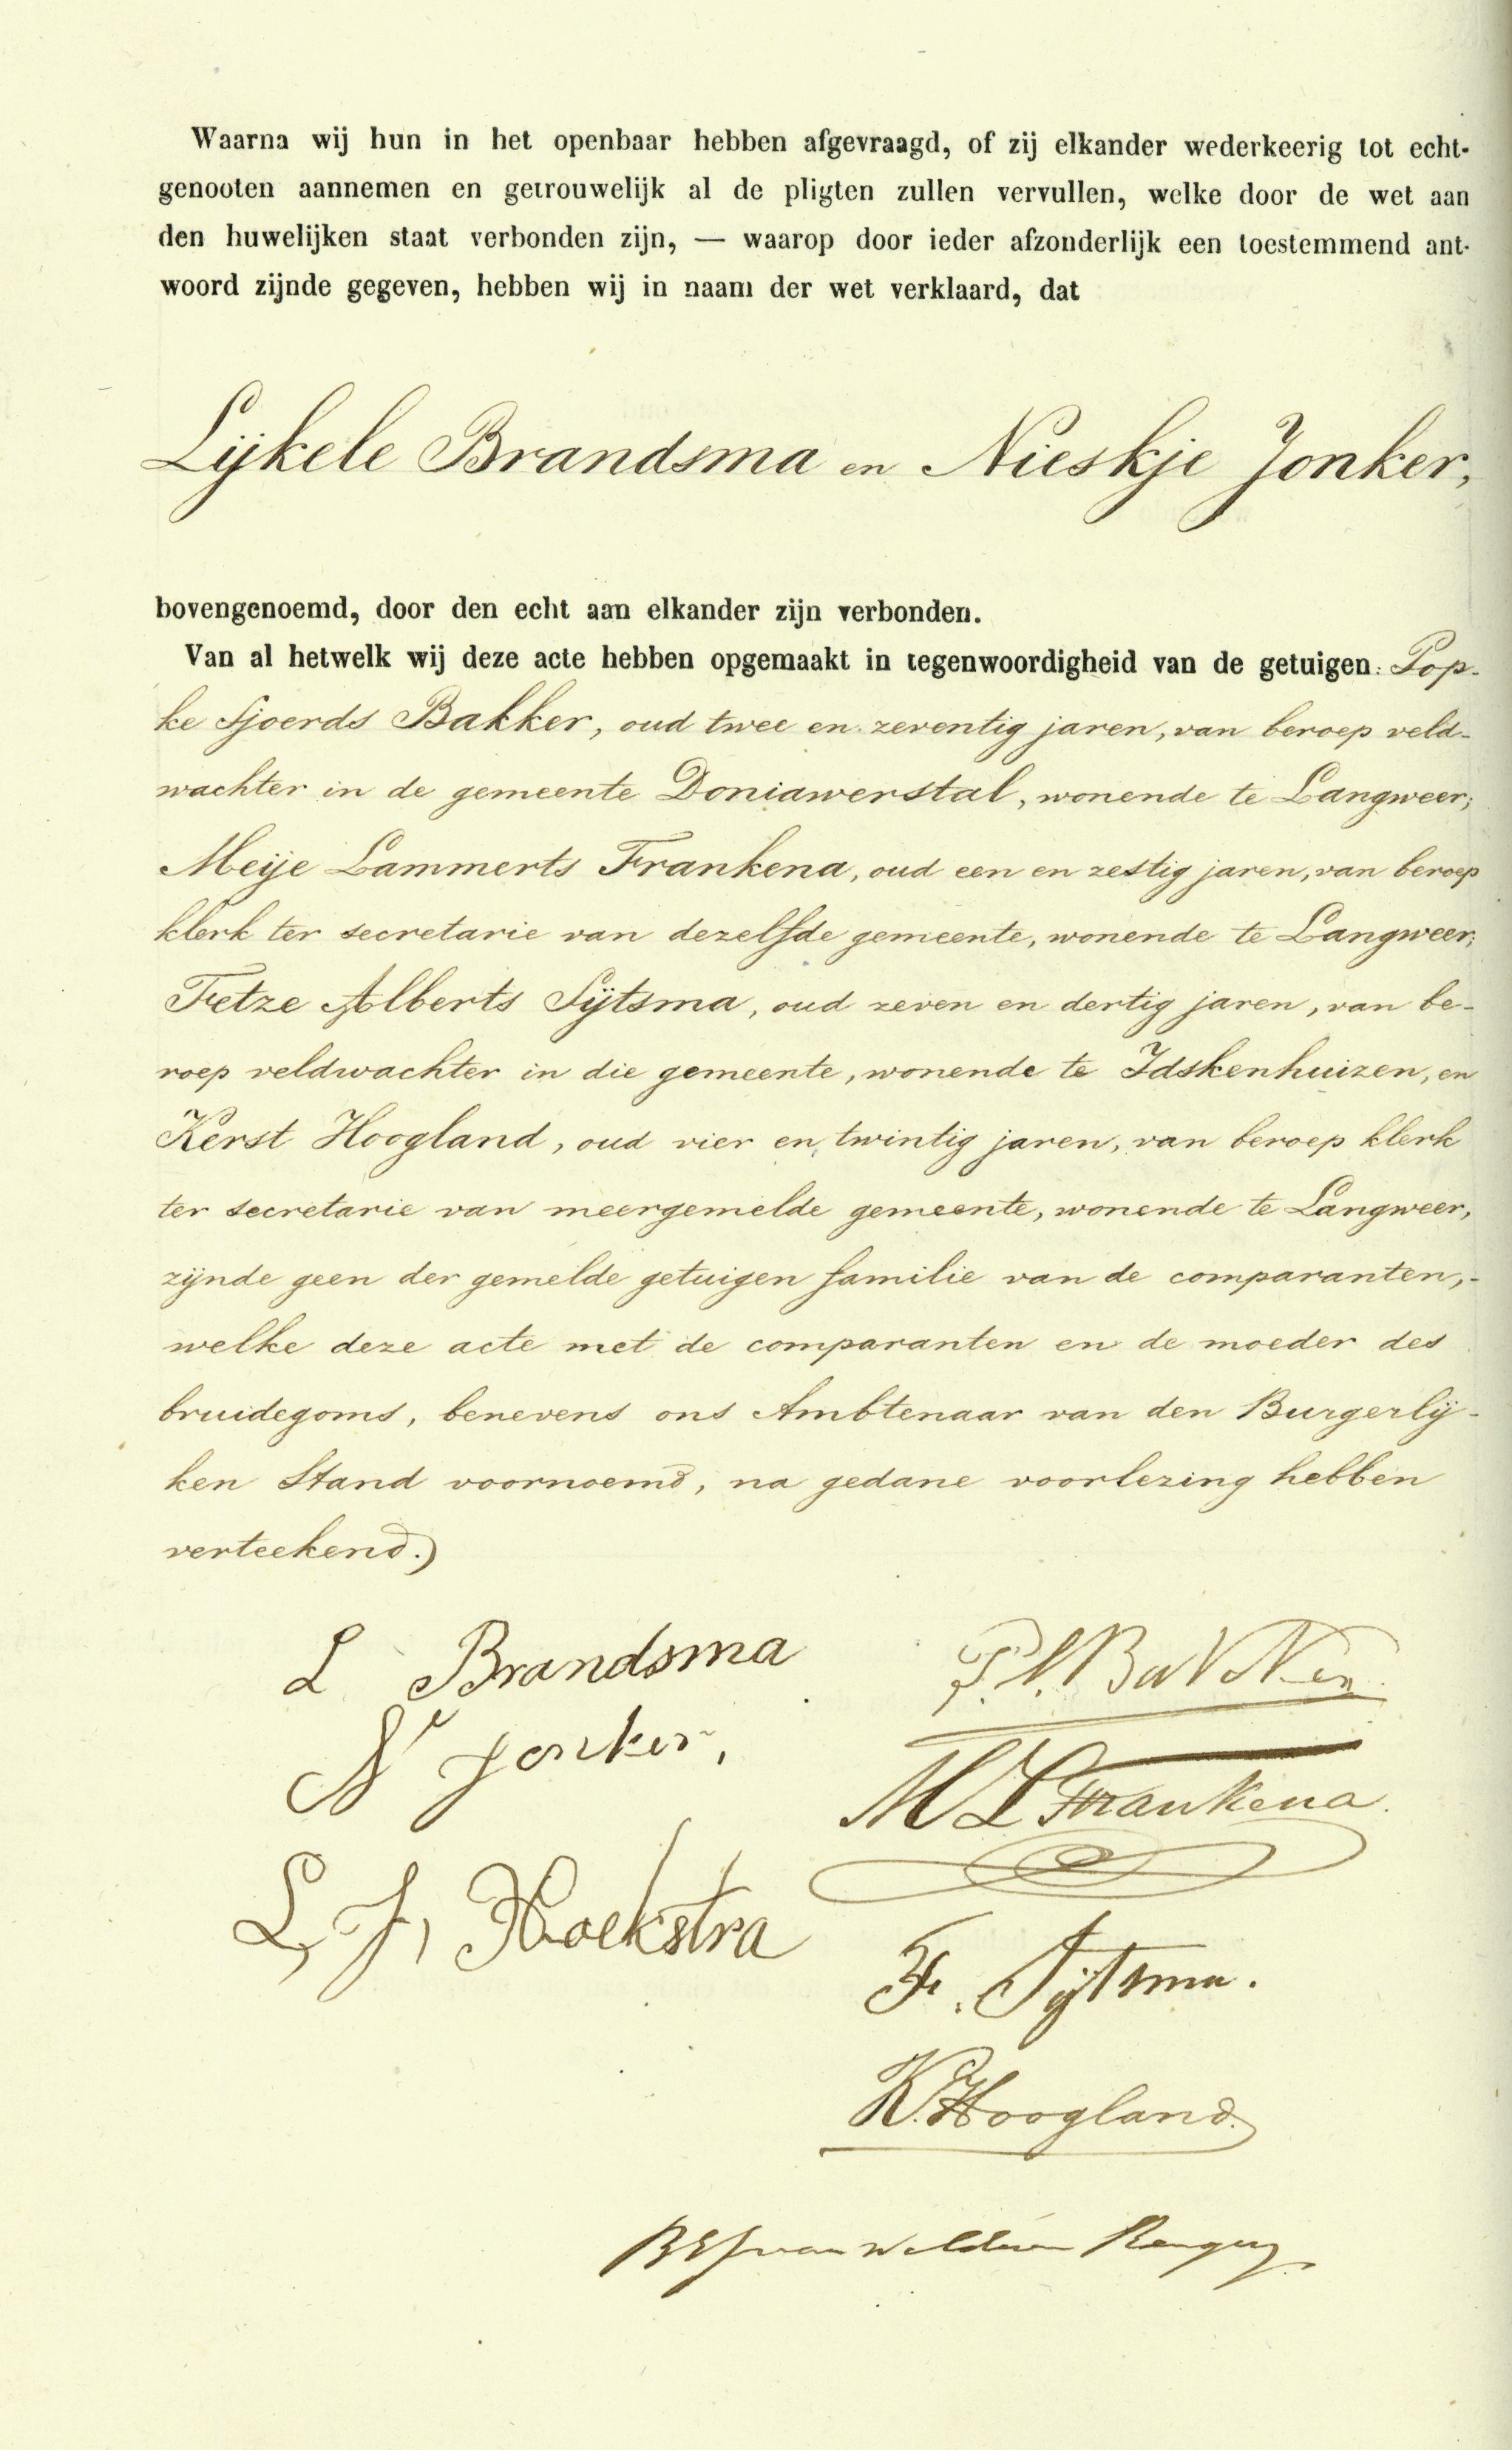 Waarna wij hun in het openbaar hebben afgevraagd, of zij elkander wederkeerig tot echt-
genooten aannemen en getrouwelijk al de pligten zullen vervullen, welke door de wet aan
den huwelijken staat verbonden zijn, — waarop door ieder afzonderlijk een toestemmend ant-
woord zijnde gegeven, hebben wij in naam der wet verklaard, dat
Lijkele Brandsma en Nieskje Jonker,
bovengenoemd, door den echt aan elkander zijn verbonden.
Van al hetwelk wij deze acte hebben opgemaakt in tegenwoordigheid van de getuigen: Pop-
ke Sjoerds Bakker, oud twee en zeventig jaren, van beroep veld-
wachter in de gemeente Doniawerstal, wonende te Langweer;
Meije Lammerts Frankena, oud een en zestig jaren, van beroep
klerk ter secretarie van dezelfde gemeente, wonende te Langweer;
Fetze Alberts Sijtsma, oud zeven en dertig jaren, van be-
roep veldwachter in die gemeente, wonende te Idskenhuizen, en
Kerst Hoogland, oud vier en twintig jaren, van beroep klerk
ter secretarie van meergemelde gemeente, wonende te Langweer,
zijnde geen der gemelde getuigen familie van de comparanten,-
welke deze acte met de comparanten en de moeder des
bruidegoms, benevens ons Ambtenaar van den Burgerlij-
ken Stand voornoemd, na gedane voorlezing hebben
verteekend.)
L Brandsma
N Jonker,
L, J, Hoekstra
P. S. Bakker
M L Frankena.
F. Sijtsma.
K. Hoogland.
van Welderen Rengers